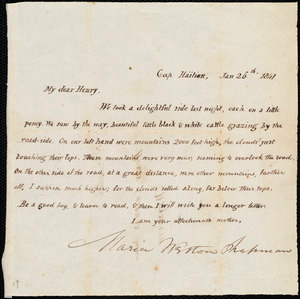 Cap Haïtien, Jan 26th. 1841
My dear Henry.
We took a delightful ride last night, each on a little
poney. We saw by the way, beautiful little black & white cattle grazing by the
road-side. On our left hand were mountains 2000 feet high, the clouds just
touching their tops. These mountains were very near, seeming to overlook the road.
On the other side of the road, at a great distance, were other mountains, farther
off, I suppose much higher; for the clouds rolled along, far below their tops.
Be a good boy, & learn to read, & then I will write you a longer letter.
I am your affectionate mother,
Maria Weston Chapman